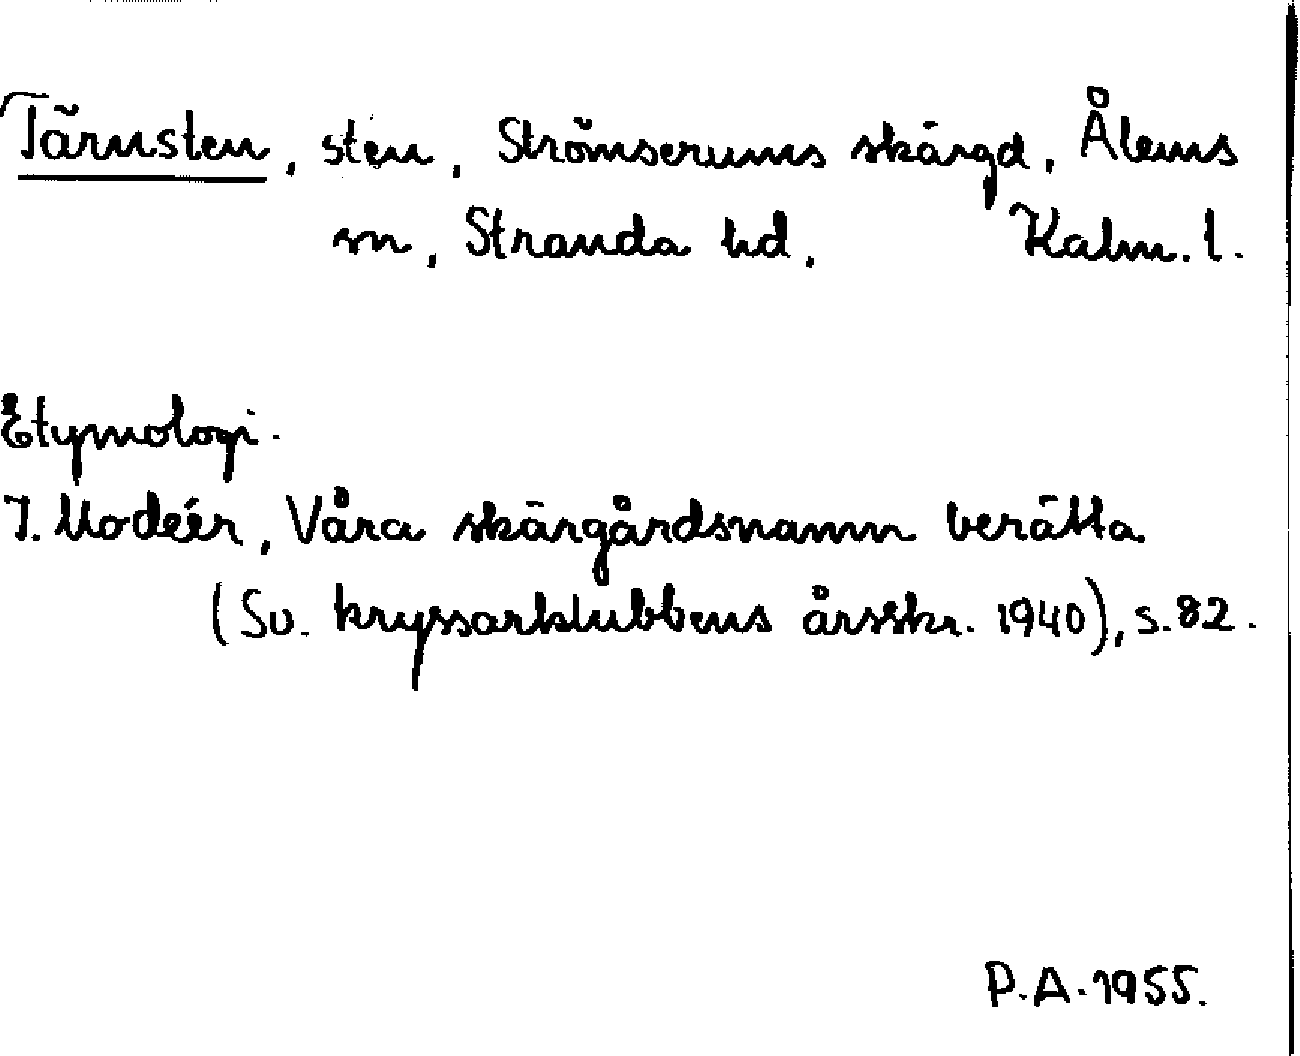 Tärnsten, sten, Strömserums skärgd, Ålems
sn, Stranda hd. Kalm. l.
Etymologi.
I. Modéer, Våra skärgårdsnamn berätta
(Sv. kryssarklubbens årsskr. 1940), s. 82.
P.A. 1955.